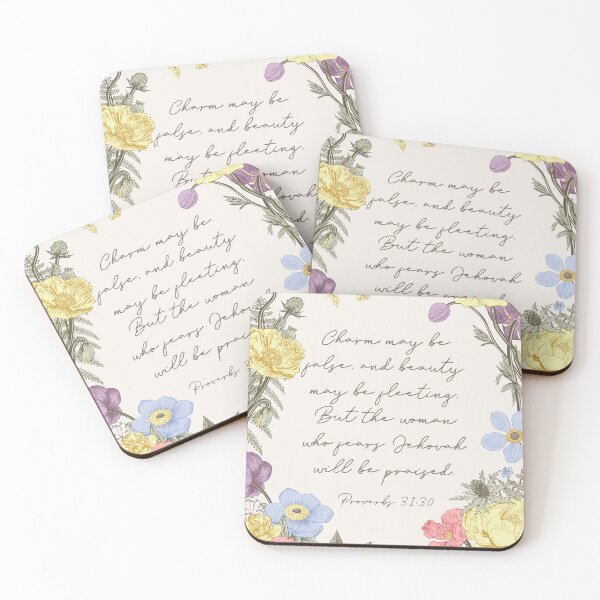 Charm may be
false, and beauty
may be fleeting.
But the woman
Jehovah
Charm may be
false, and beauty
may be fleeting.
But the woman
who fears Jehovah
will be praised
Charm may be
false, and beauty
may be fleeting.
But the woman
who fears
will be praised
Proverbs
Charm may be
false, and beauty
may be fleeting.
But the woman
who fears Jehovah
will be praised.
Proverbs 31:30